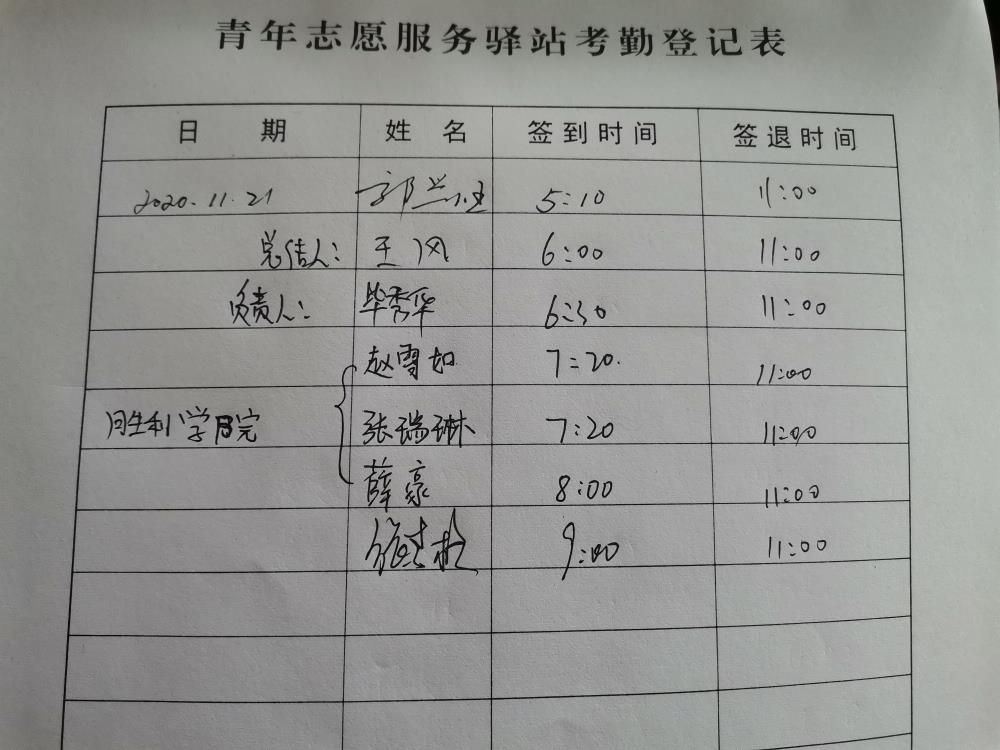 青年志愿服务驿站考勤登记表
日 期 姓 名 签到时间 签退时间
2020.11.21 郭兰 5:10 11:00
总结人: 王风 6:00 11:00
负责人: 毕秀华 6:30 11:00
赵雪如 7:20. 11:00
学院 张瑞琳 7:20 11:00
薛豪 8:00 11:00
9:00 11:00